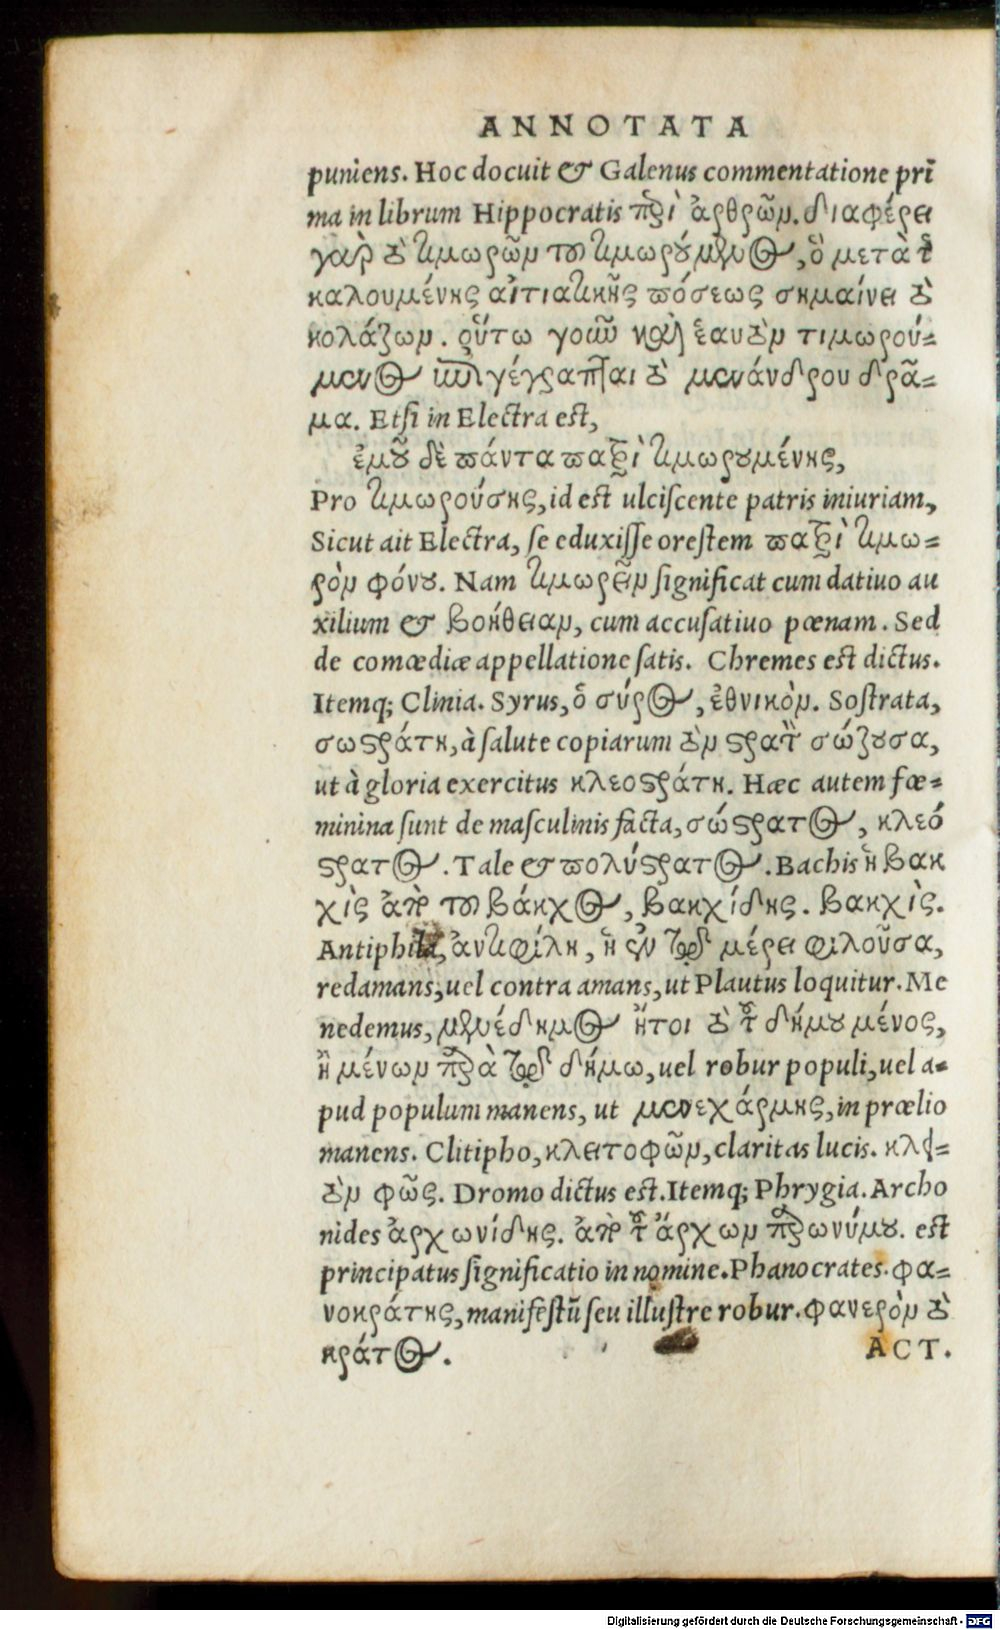 ANNOTATA
puniens. Hoc docuit & Galenus commentatione prī
ma in librum Hippocratis πε̣ρὶ ἄρθρων. διαφέρει
γὰρ τὸ τιμωρῶν τοῦ τιμωρούμενος, ὃ μετὰ τῆς
καλουμένης αἰτιατικῆς πτώσεως σημαίνει τὸ
κολάζων. οὕτω γοῦν καὶ ἑαυτὸν τιμωρού=
μενος ἐπιγέγραπται τὸ μενάνδρου δρᾶ=
μα. Etsi in Electra est,
ἐμοῦ δὲ πάντα πατρὶ τιμωρουμένης,
Pro τιμωρούσης, id est ulciscente patris iniuriam,
Sicut ait Electra, se eduxisse orestem πατρὶ τιμω=
ρὸν φόνου. Nam τιμωρεῖν significat cum datiuo au
xilium & βοήθειαν, cum accusatiuo pœnam. Sed
de comœdiæ appellatione satis. Chremes est dictus.
Itemq; Clinia. Syrus, ὁ σύρος, ἐθνικὸν. Sostrata,
σωστράτη, à salute copiarum τὸν στρατὸν σώζουσα,
ut à gloria exercitus κλεοστράτη. Hæc autem fœ=
minina sunt de masculinis facta, σώστρατος, κλεό
στρατος. Tale & πολύστρατος. Bachis ἡ βακ
χὶς ἀπὸ τοῦ βάκχος, βακχίδης. βακχὶς.
Antiphila, ἀντιφίλη, ἡ ἐν τῷ μέρει φιλοῦσα,
redamans, uel contra amans, ut Plautus loquitur. Me
nedemus, μενέδημος ἤτοι τὸ τοῦ δήμου μένος,
ἢ μένων παρὰ τῷ δήμῳ, uel robur populi, uel a=
pud populum manens, ut μενεχάρμης, in prœlio
manens. Clitipho, κλειτοφῶν, claritas lucis. κλει=
τὸν φῶς. Dromo dictus est. Itemq; Phrygia. Archo
nides ἀρχωνίδης. ἀπὸ τοῦ ἄρχων παρωνύμου. est
principatus significatio in nomine. Phanocrates. φα=
νοκράτης, manifestū seu illustre robur. φανερὸν τὸ
κράτος.
ACT.
Digitalisierung gefördert durch die Deutsche Forschungsgemeinschaft - DFG